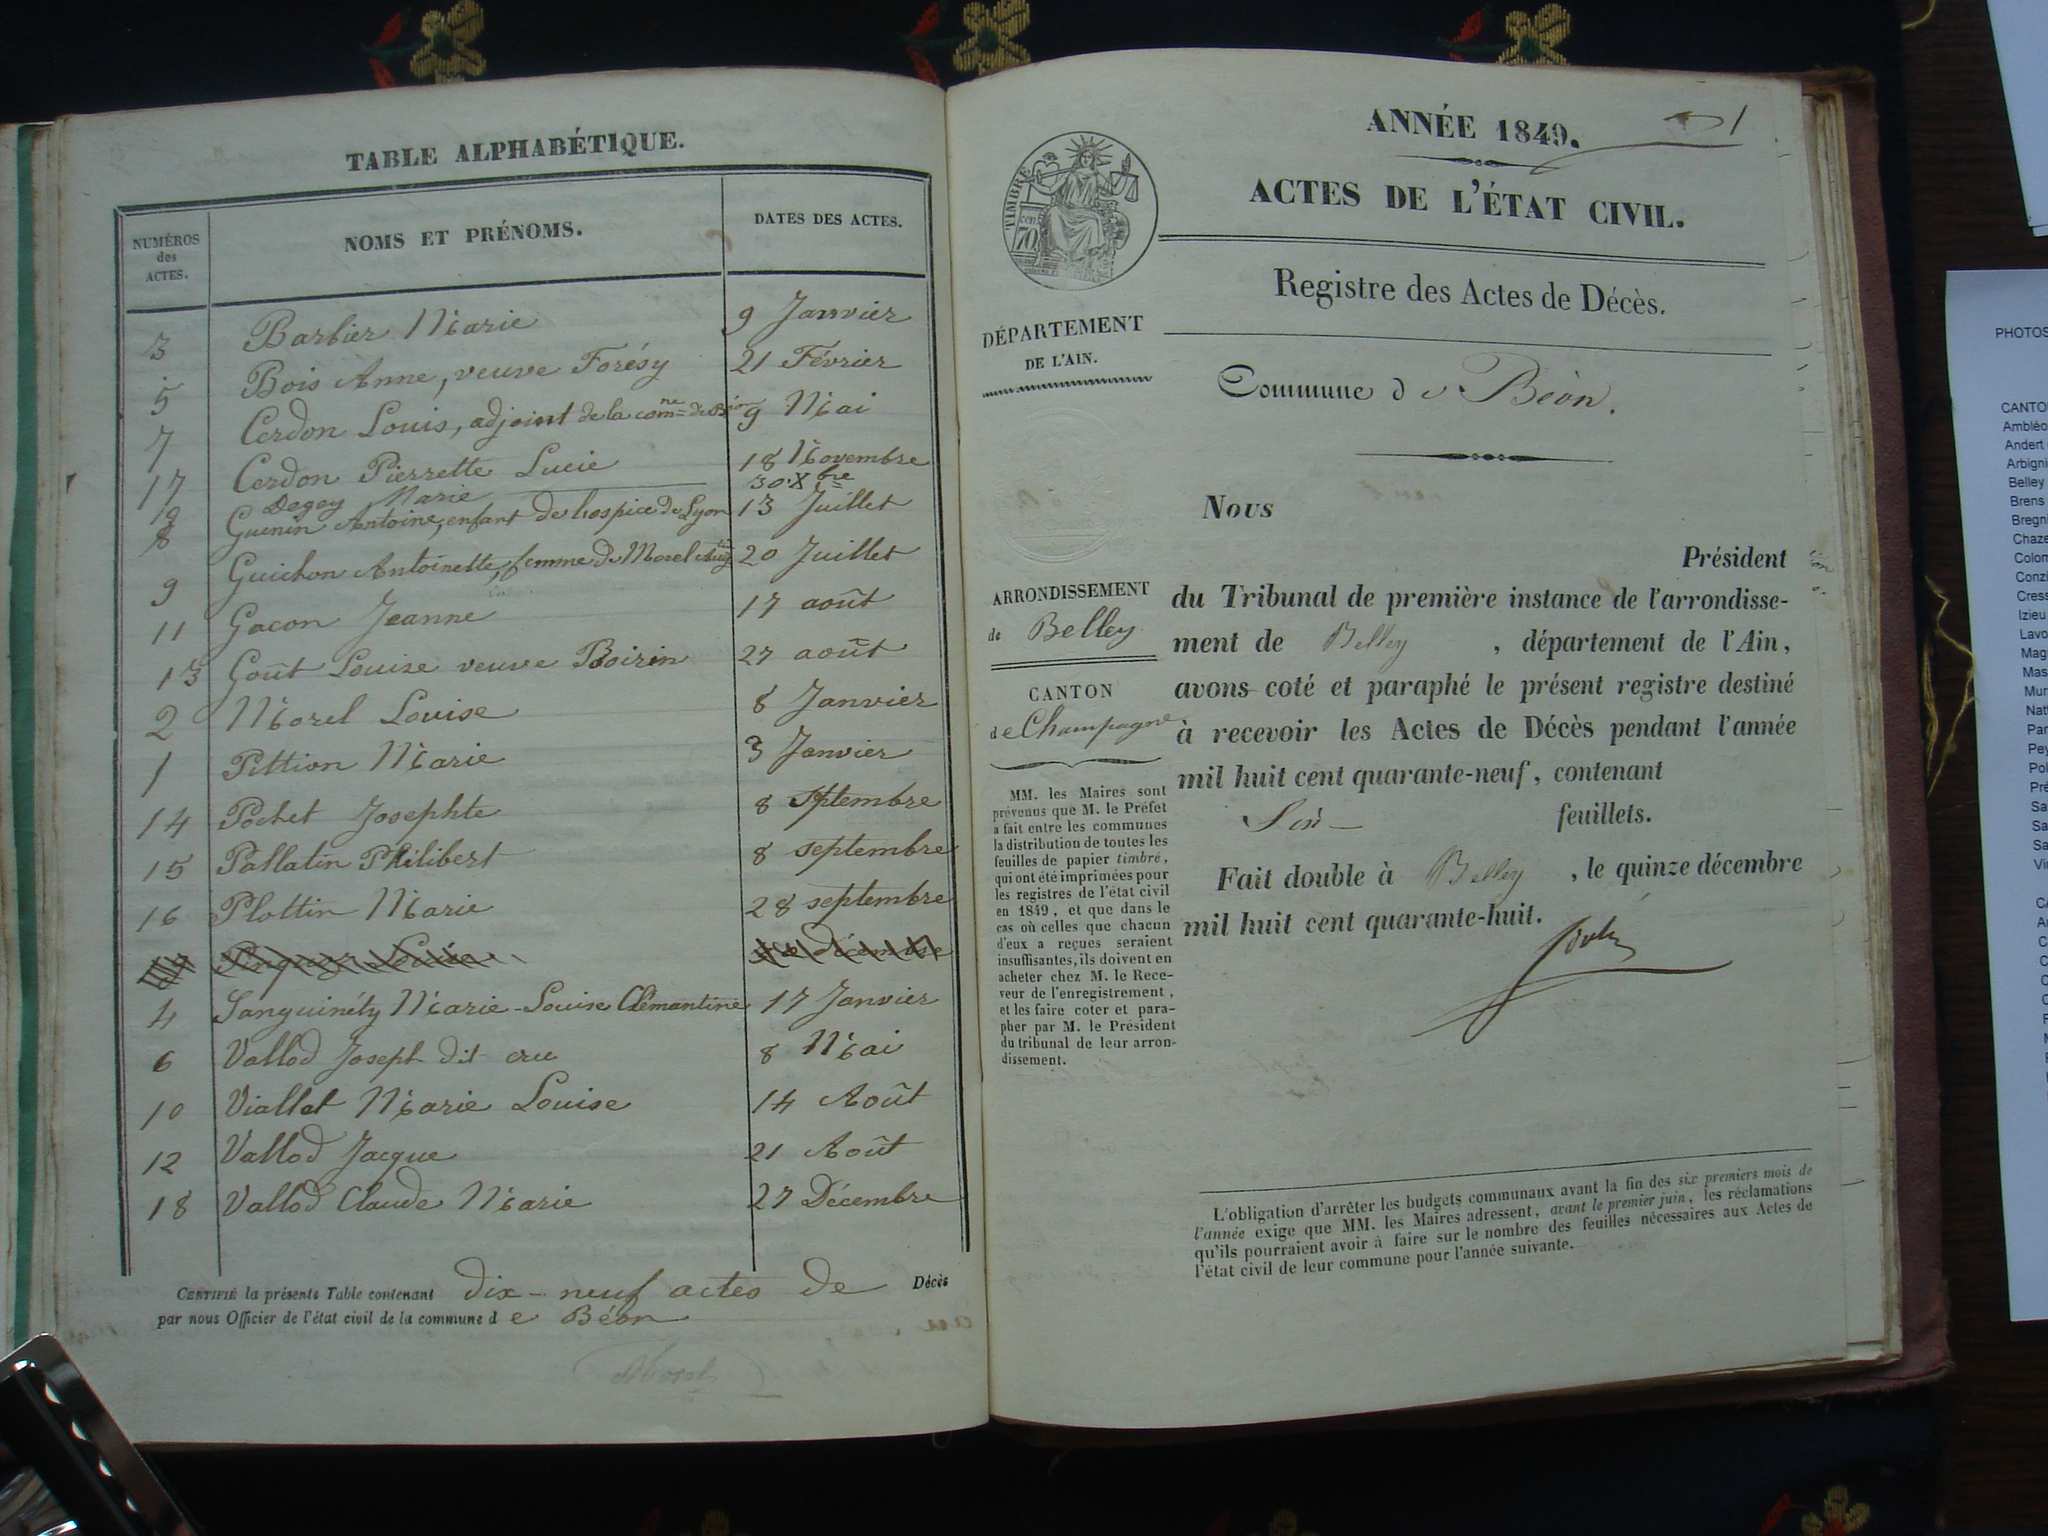 TABLE ALPHABÉTIQUE.
NUMÉROS des ACTES.
NOMS ET PRÉNOMS.
DATES DES ACTES.
3 Barbier Marie 9 Janvier
5 Bois Anne, veuve Forésy 21 Février
7 Cerdon Louis, adjoint de la comne de Béon 9 Mai
17 Cerdon Pierrette Lucie 18 Novembre
19 Degoy Marie 30 Xbre
8 Guenin Antoine, enfant de hospice de Lyon 13 Juillet
9 Guichon Antoinette, femme de Morel 20 Juillet
11 Gacon Jeanne 17 août
13 Goût Louise veuve Boirin 27 août
2 Morel Louise 8 Janvier
1 Pittion Marie 3 Janvier
14 Pochet Josephte 8 Septembre
15 Pallatin Philibert 8 septembre
16 Plottin Marie 28 septembre
4 Sanguinéty Marie-Louise Clémantine 17 Janvier
6 Vallod Joseph dit cru 8 Mai
10 Viallet Marie Louise 14 Août
12 Vallod Jacque 21 Août
18 Vallod Claude Marie 27 Décembre
CERTIFIÉ la présente Table contenant dix-neuf actes de Décès
par nous Officier de l'état civil de la commune de Béon
Morel
1
ANNÉE 1849.
ACTES DE L'ÉTAT CIVIL.
Registre des Actes de Décès.
TIMBRE
70
DÉPARTEMENT
DE L'AIN.
Commune de Béon.
ARRONDISSEMENT
de Belley
CANTON
de Champagne
MM. les Maires sont
prévenus que M. le Préfet
a fait entre les communes
la distribution de toutes les
feuilles de papier timbré,
qui ont été imprimées pour
les registres de l'état civil
en 1849, et que dans le
cas où celles que chacun
d'eux a reçues seraient
insuffisantes, ils doivent en
acheter chez M. le Rece-
veur de l'enregistrement,
et les faire coter et para-
pher par M. le Président
du tribunal de leur arron-
dissement.
Nous
Président
du Tribunal de première instance de l'arrondisse-
ment de Belley, département de l'Ain,
avons coté et paraphé le présent registre destiné
à recevoir les Actes de Décès pendant l'année
mil huit cent quarante-neuf, contenant
Six feuillets.
Fait double à Belley, le quinze décembre
mil huit cent quarante-huit.
L'obligation d'arrêter les budgets communaux avant la fin des six premiers mois de
l'année exige que MM. les Maires adressent, avant le premier juin, les réclamations
qu'ils pourraient avoir à faire sur le nombre des feuilles nécessaires aux Actes de
l'état civil de leur commune pour l'année suivante.
PHOTOS
CANTO
Ambléo
Andert
Arbigni
Belley
Brens
Bregni
Chaze
Colom
Conzi
Cress
Izieu
Lavo
Mag
Mas
Mur
Natt
Par
Pey
Pol
Pré
Sa
Sa
Sa
Vir